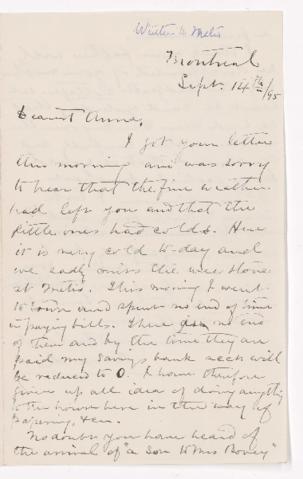 Written to Metis
Montreal
Sept. 14th/95
Dearest Anna,
I got your letter
this morning and was sorry
to hear that the fine weather
had left you and that the
little ones had colds. Here
it is very cold to-day and
we sadly miss the wee stove
at Metis. This morning I went
to town and spent no end of time
in paying bills. There is no end
of them and by the time they are
paid my savings bank acct will
be reduced to 0. I have therefore
given up all idea of doing anything
to the house here in the way of
papering, &c.
No doubt you have heard of
the arrival of "a son to Mrs Bovey"